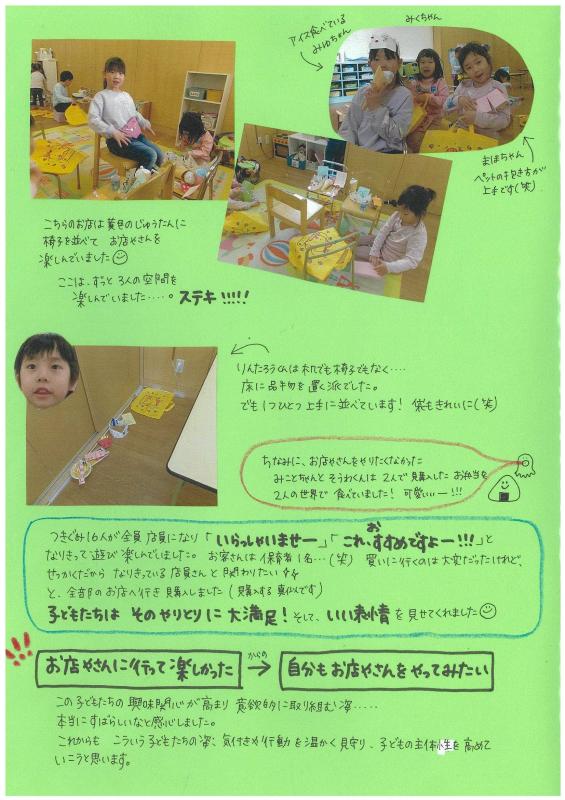 アイス食べている
みゆちゃん
みくちゃん
まほちゃん
ペットの抱き方が
上手です(笑)
こちらのお店は黄色のじゅうたんに
椅子を並べて お店やさんを
楽しんでいました
ここは、ずっと 3人の空間を
楽しんでいました・・・・。ステキ!!!!!
りんたろうくんは 机でも椅子でもなく・・・・
床に品物を置く派でした。
でも1つひとつ上手に並べています! 袋もきれいに(笑)
ちなみに、お店やさんをやりたくなかった
みことちゃんと そうわくんは 2人で購入した お弁当を
2人の世界で 食べていました! 可愛いいー!!!
つきぐみ16人が全員 店員になり「いらっしゃいませー」「これ、おすすめですよー!!!」と
なりきって遊び 楽しんでいました。 お客さんは 保育者1名・・・(笑) 買いに行くのは大変だったけれど、
せっかくだから なりきっている店員さん と 関わりたい
と、全部のお店へ行き 購入しました(購入する真似です)
子どもたちは そのやりとりに 大満足! そして、いい表情 を 見せてくれました
!!!
お店やさんに行って楽しかった からの → 自分もお店やさんをやってみたい
この 子どもたちの 興味関心が 高まり 意欲的に取り組む 姿・・・・・
本当にすばらしいなと感心しました。
これからも こういう子どもたちの姿、気付きや行動 を 温かく 見守り、子どもの主体性を 高めて
いこうと思います。